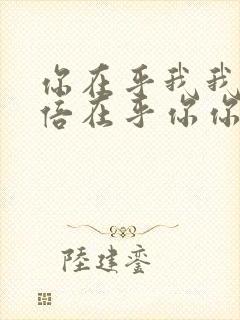 你在乎我我
倍在乎你你
陸建鑾